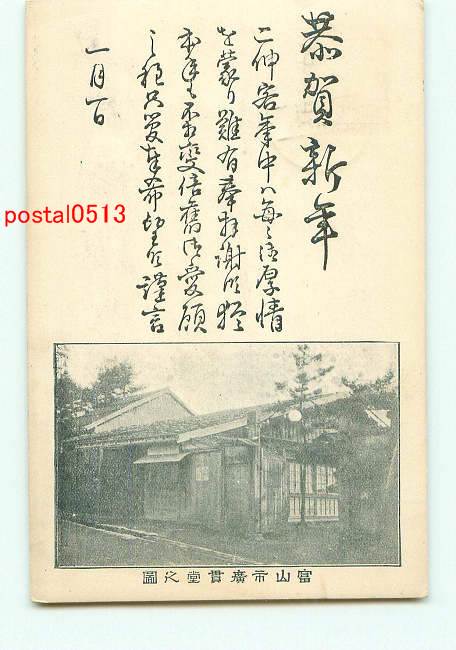 恭賀新年
二伸客年中ハ毎々御厚情
を蒙り難有奉拝謝候猶
本年も不相変倍舊御愛顧
之程
奉希望候謹言
一月一日
postal0513
富山市廣貫堂之圖